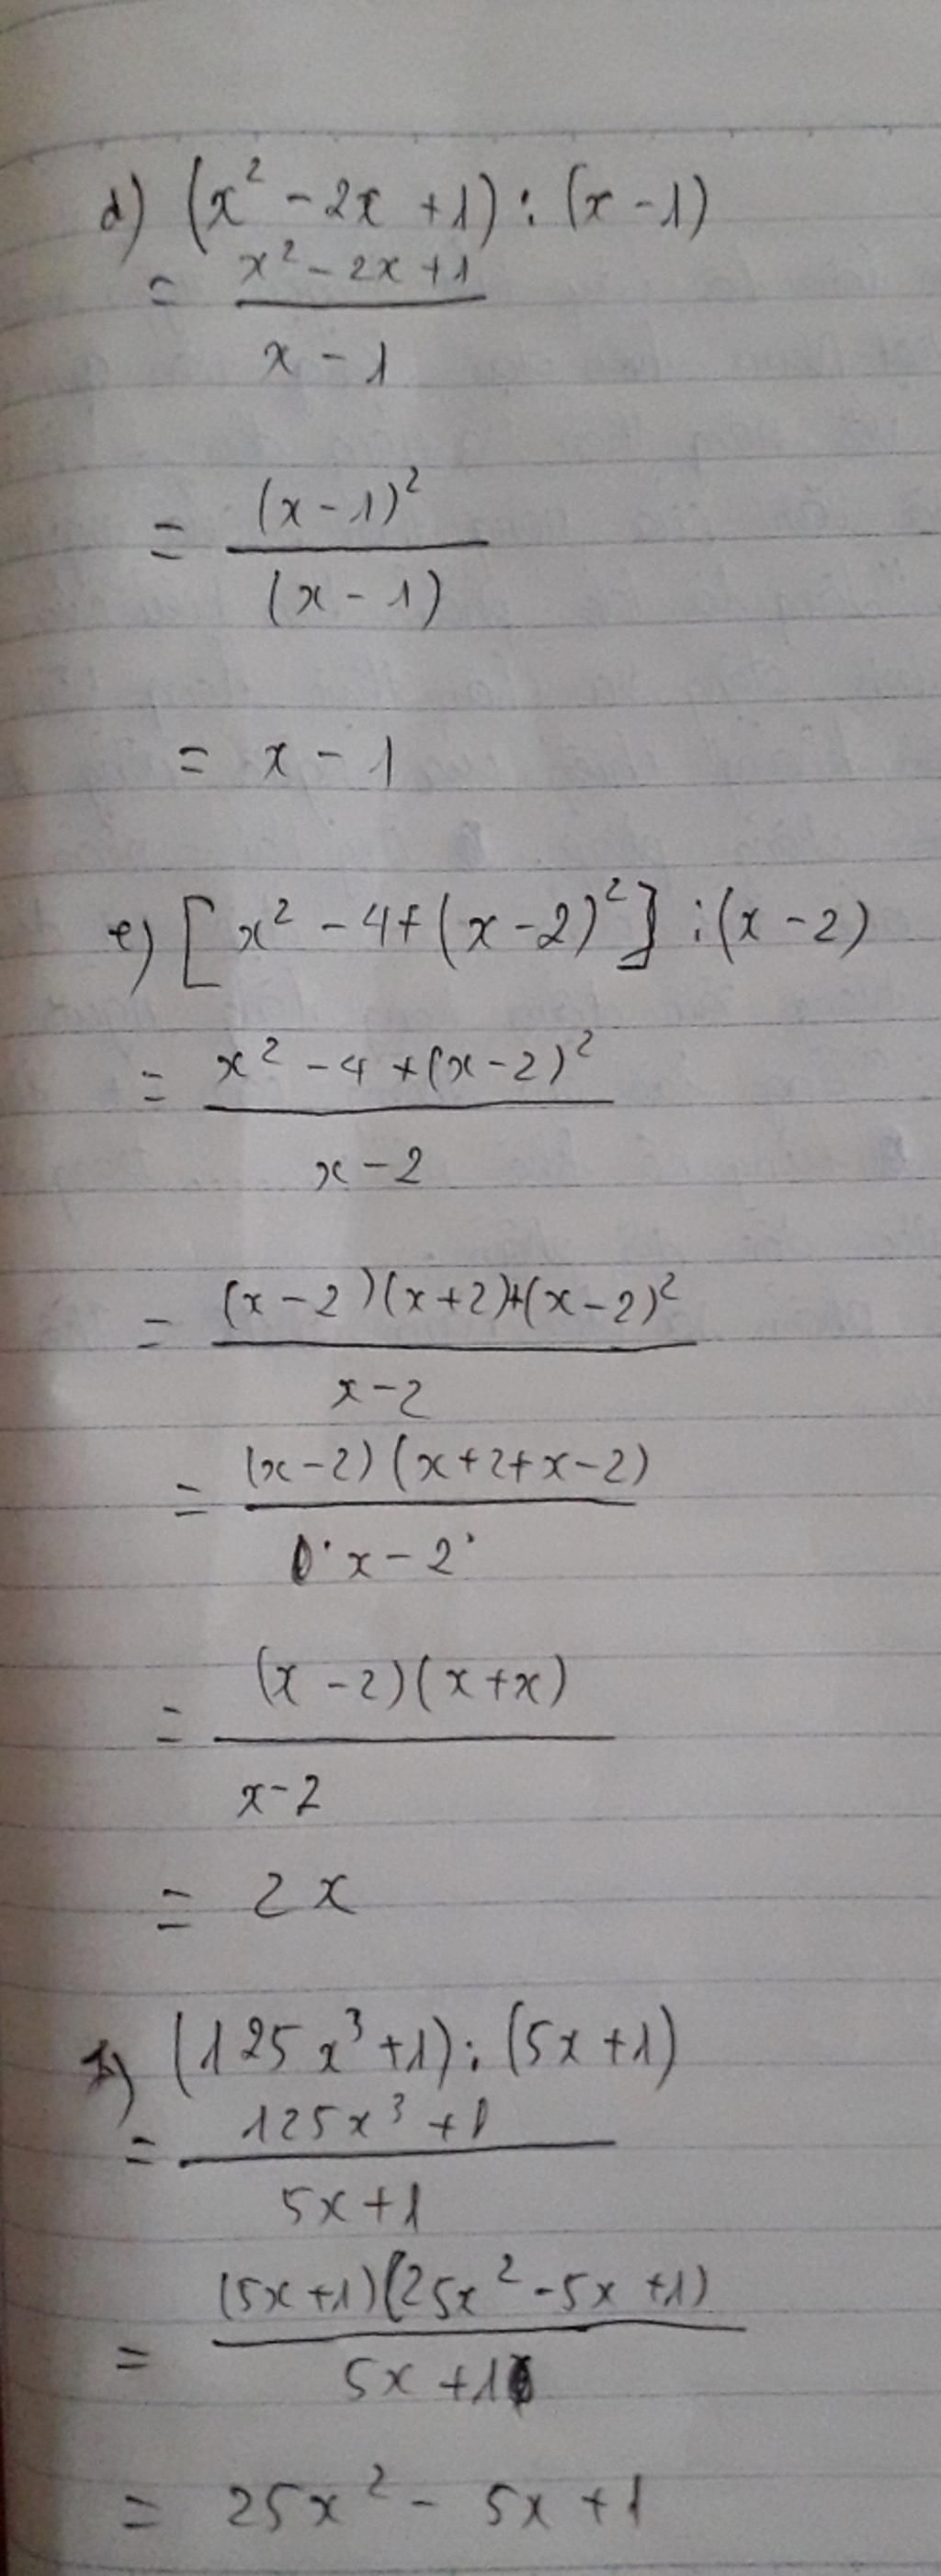 d) (x² - 2x + 1) : (x - 1)
= (x² - 2x + 1) / (x - 1)
= (x - 1)² / (x - 1)
= x - 1
e) [x² - 4 + (x - 2)²] : (x - 2)
= (x² - 4 + (x - 2)²) / (x - 2)
= ((x - 2)(x + 2) + (x - 2)²) / (x - 2)
= (x - 2)(x + 2 + x - 2) / (x - 2)
= (x - 2)(x + x) / (x - 2)
= 2x
(125x³ + 1) : (5x + 1)
= (125x³ + 1) / (5x + 1)
= (5x + 1)(25x² - 5x + 1) / (5x + 1)
= 25x² - 5x + 1